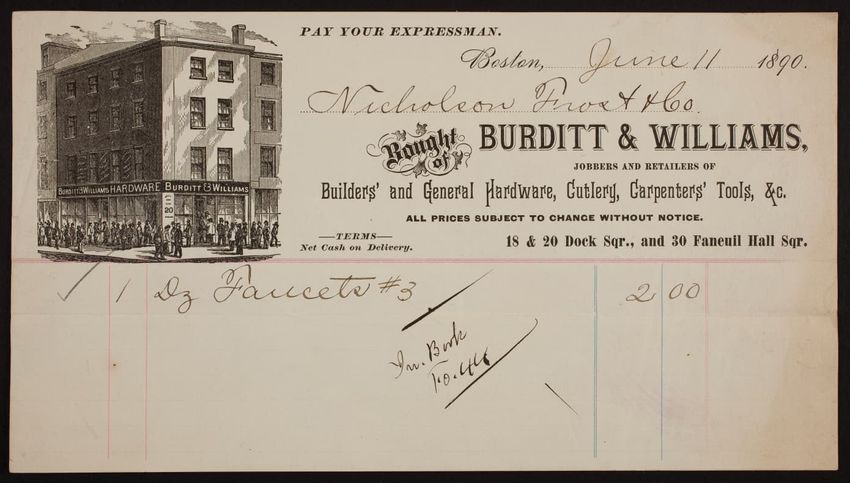 PAY YOUR EXPRESSMAN.
Boston, June 11 1890.
Nicholson Frost & Co.
Bought of BURDITT & WILLIAMS,
JOBBERS AND RETAILERS OF
Builders' and General Hardware, Cutlery, Carpenters' Tools, &c.
ALL PRICES SUBJECT TO CHANGE WITHOUT NOTICE.
—TERMS—
Net Cash on Delivery.
18 & 20 Dock Sqr., and 30 Faneuil Hall Sqr.
BURDITT & WILLIAMS HARDWARE BURDITT & WILLIAMS
20
1 Dz Faucets #3 2 00
In. Book
Fo. 44